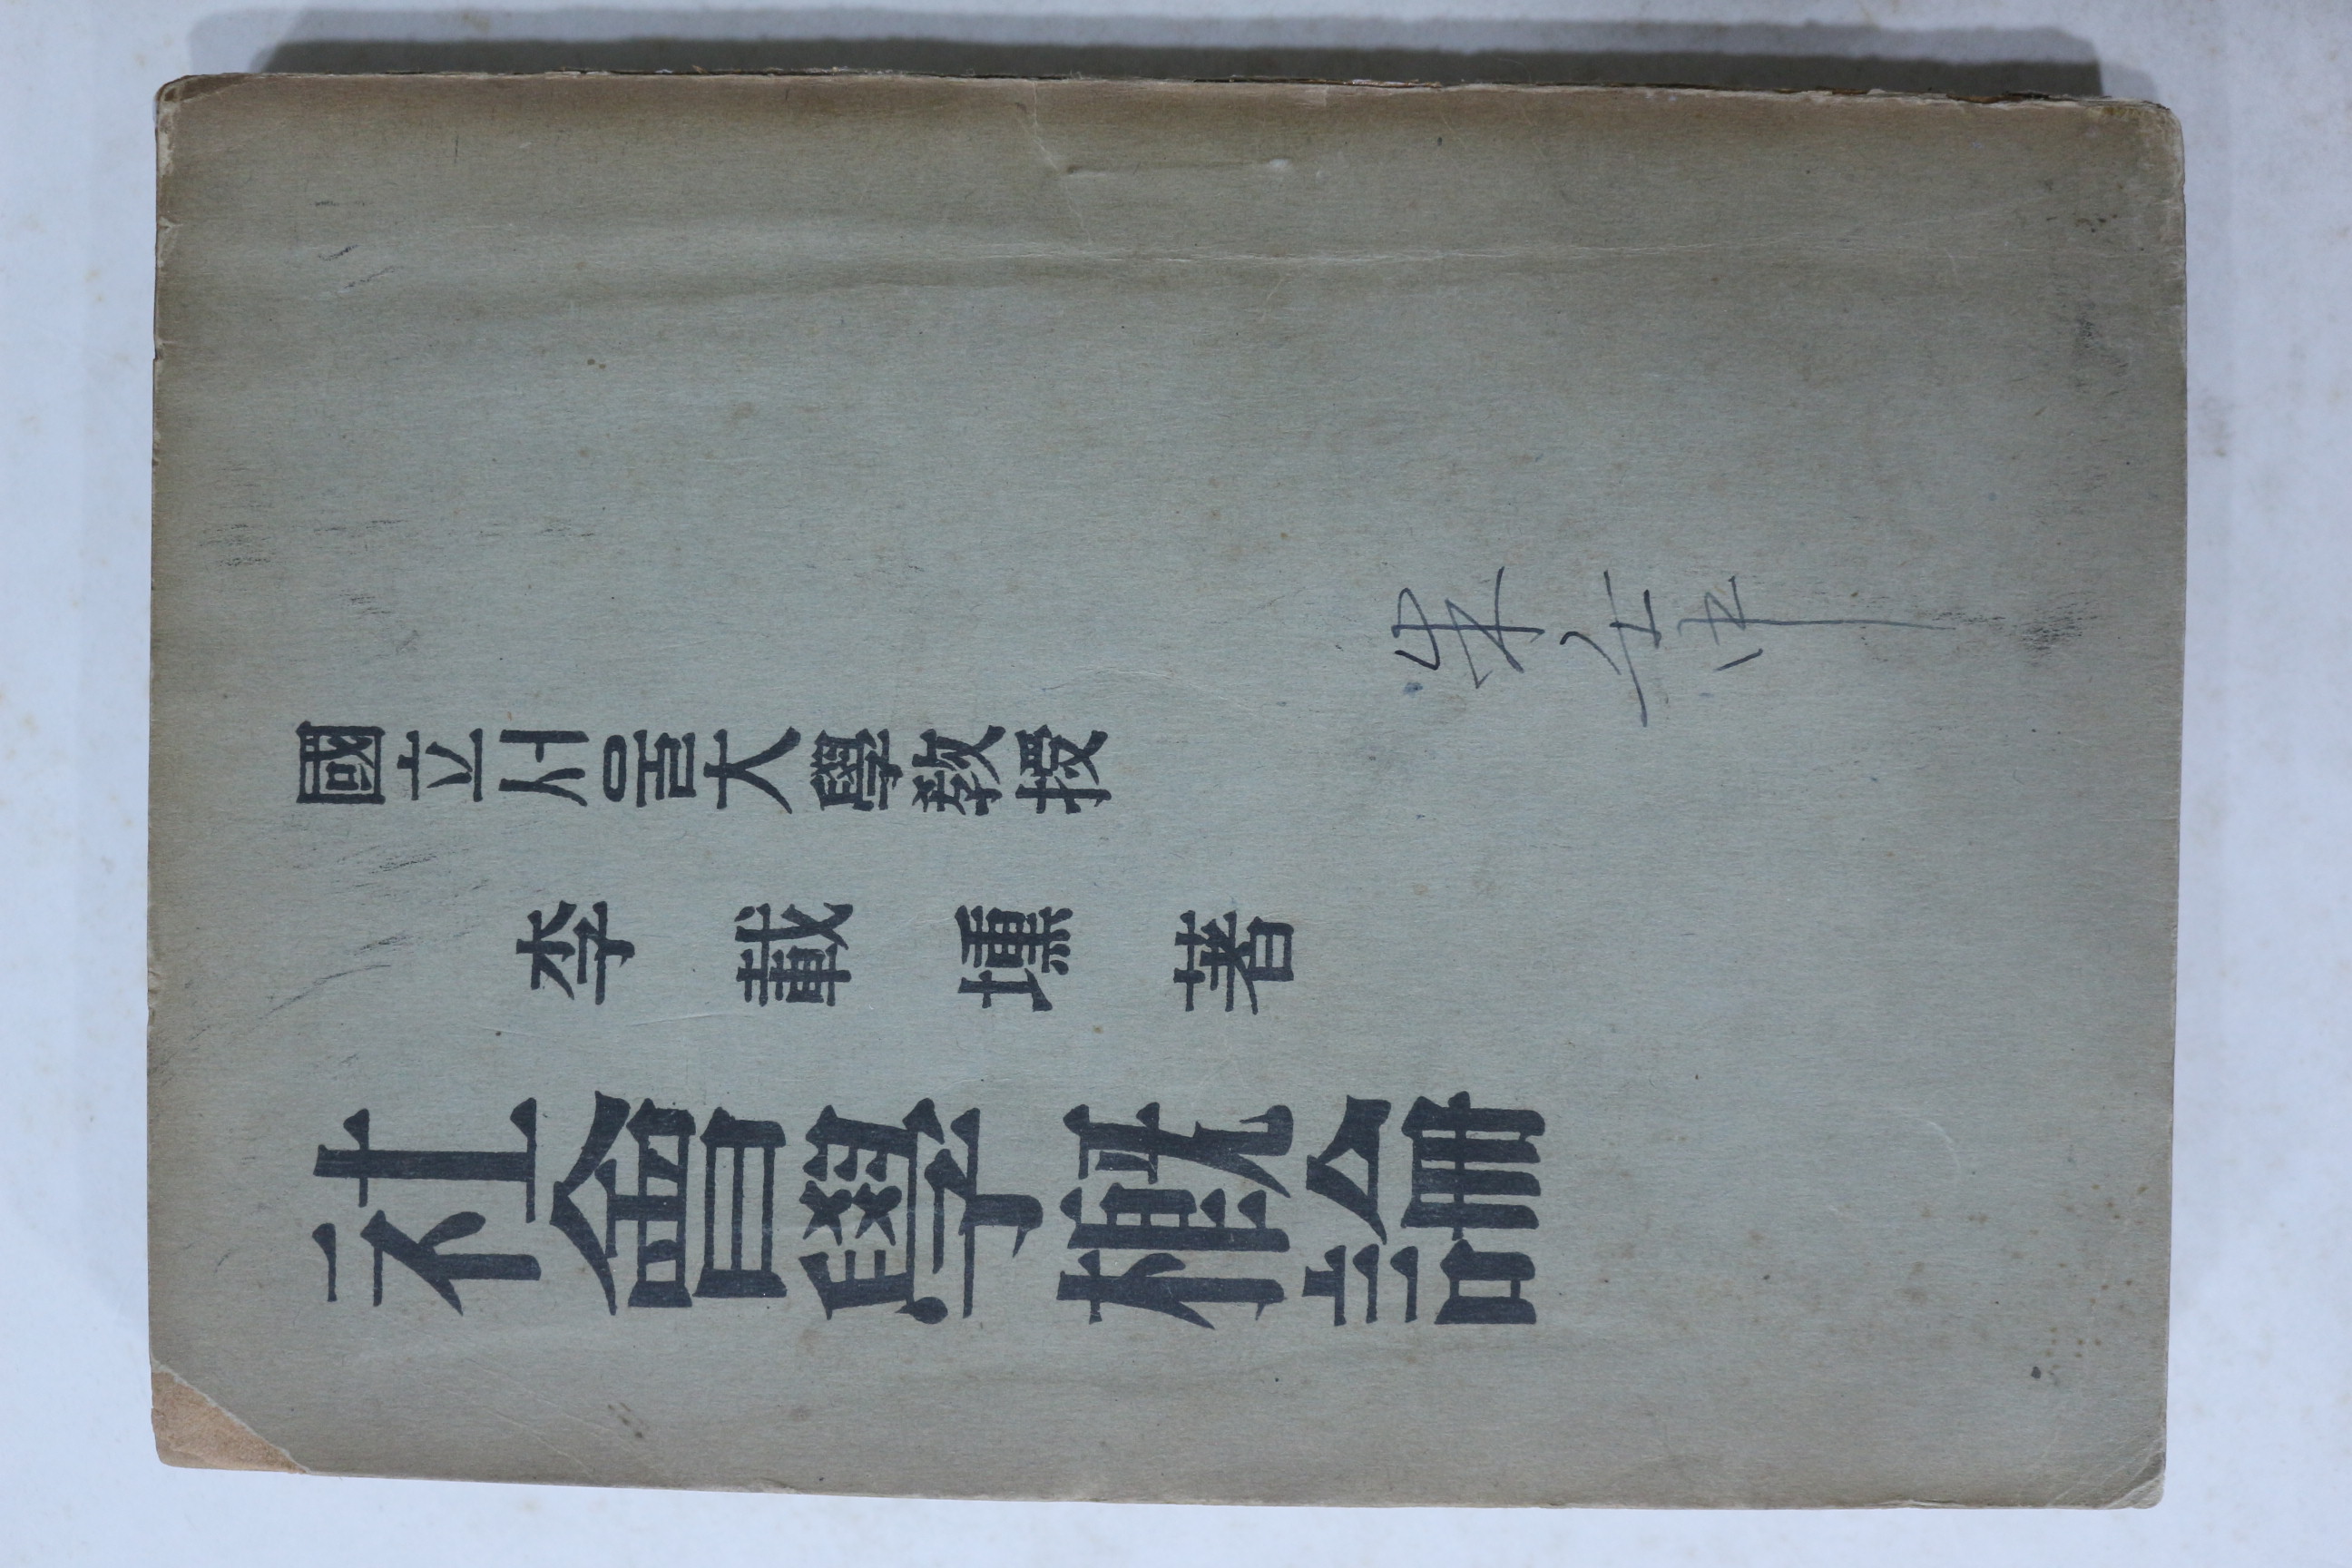 國立서울大學敎授
李載壎著
社會學槪論